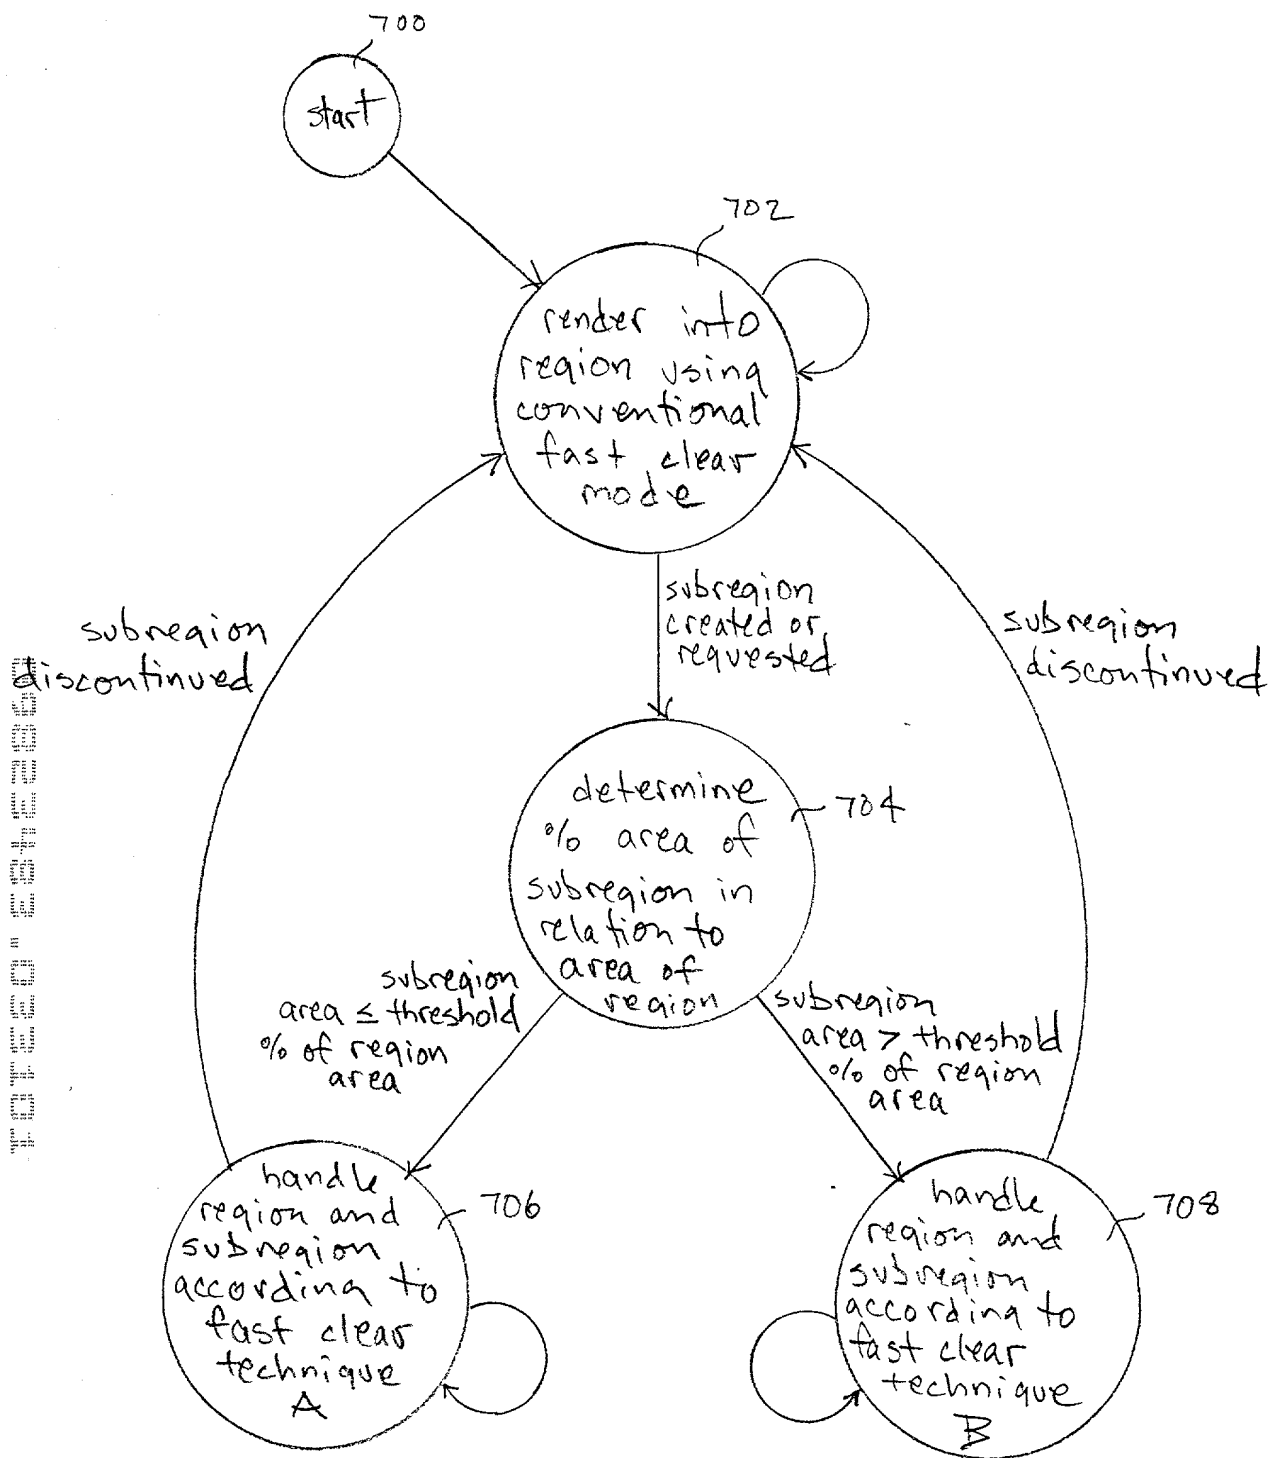 700
start
702
render into
region using
conventional
fast clear
mode
subregion
created or
requested
subregion
discontinued
subregion
discontinued
determine
% area of
subregion in
relation to
area of
region
704
subregion
area ≤ threshold
% of region
area
subregion
area > threshold
% of region
area
handle
region and
subregion
according to
fast clear
technique
A
706
handle
region and
subregion
according to
fast clear
technique
B
708